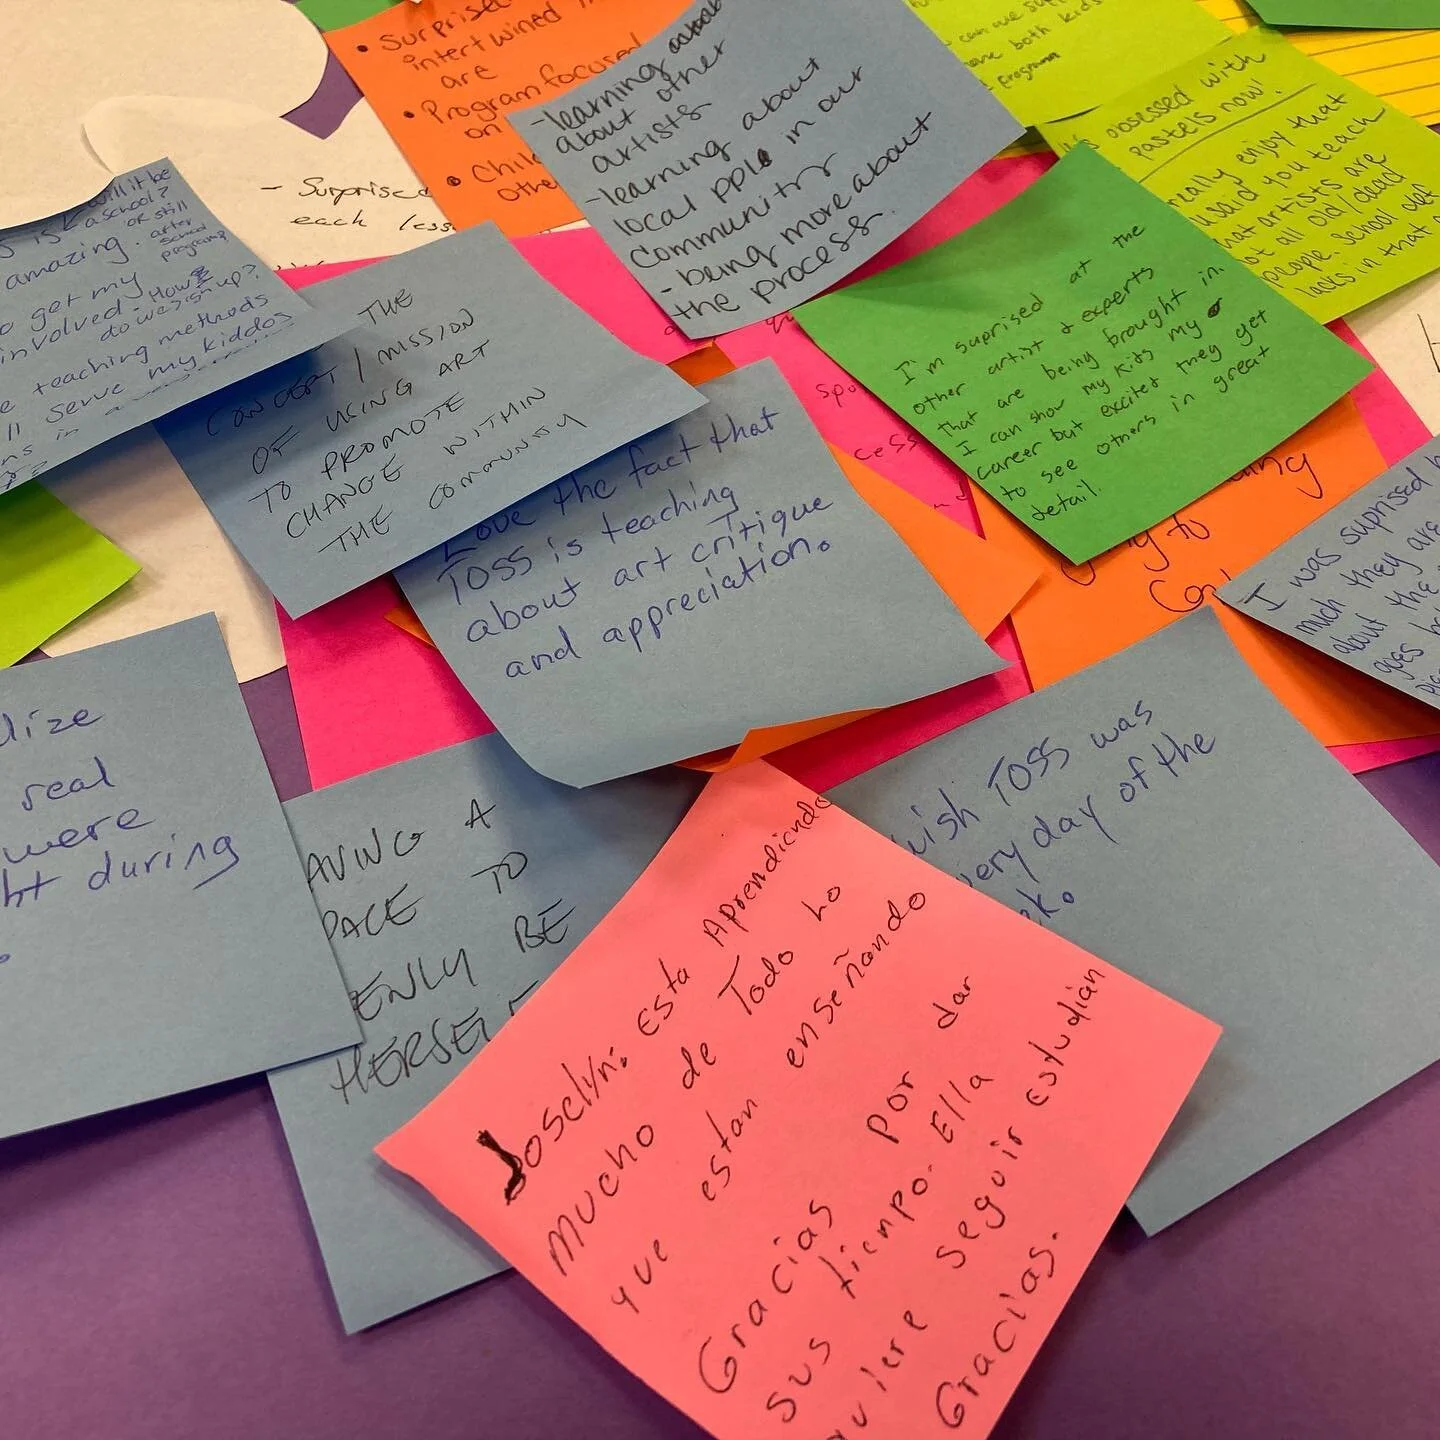 • Surprise
intertwined
are
• Program focused
on
• Chil
othe
- Surprised
each less
-learning about
about other
artists
-learning about
local pple in our
Community
-being more about
the process.
can we
both kids
program
obsessed with
pastels now!
really enjoy that
u said you teach
that artists are
not all old/dead
people. School def
lacks in that
will it be
a school?
or still
after
school
program?
is
amazing.
o get my
involved. How
do we sign up?
teaching methods
ll serve my kiddos
ns in
THE
CONCEPT / MISSION
OF USING ART
TO PROMOTE
CHANGE WITHIN
THE COMMUNITY
Love the fact that
TOSS is teaching
about art critique
and appreciation.
I'm suprised at the
other artist & experts
that are being brought in.
I can show my kids my
career but excited they get
to see others in great
detail.
cess
ng to
I was suprised
much they are
about the
goes
lize
real
were
ht during
AVING A
PACE TO
ENLY BE
HERSELF
wish TOSS was
very day of the
ek.
Joselyn: Esta Aprendiendo
mucho de Todo Lo
que estan enseñando
Gracias por dar
sus tiempo. Ella
quiere seguir Estudian
Gracias.